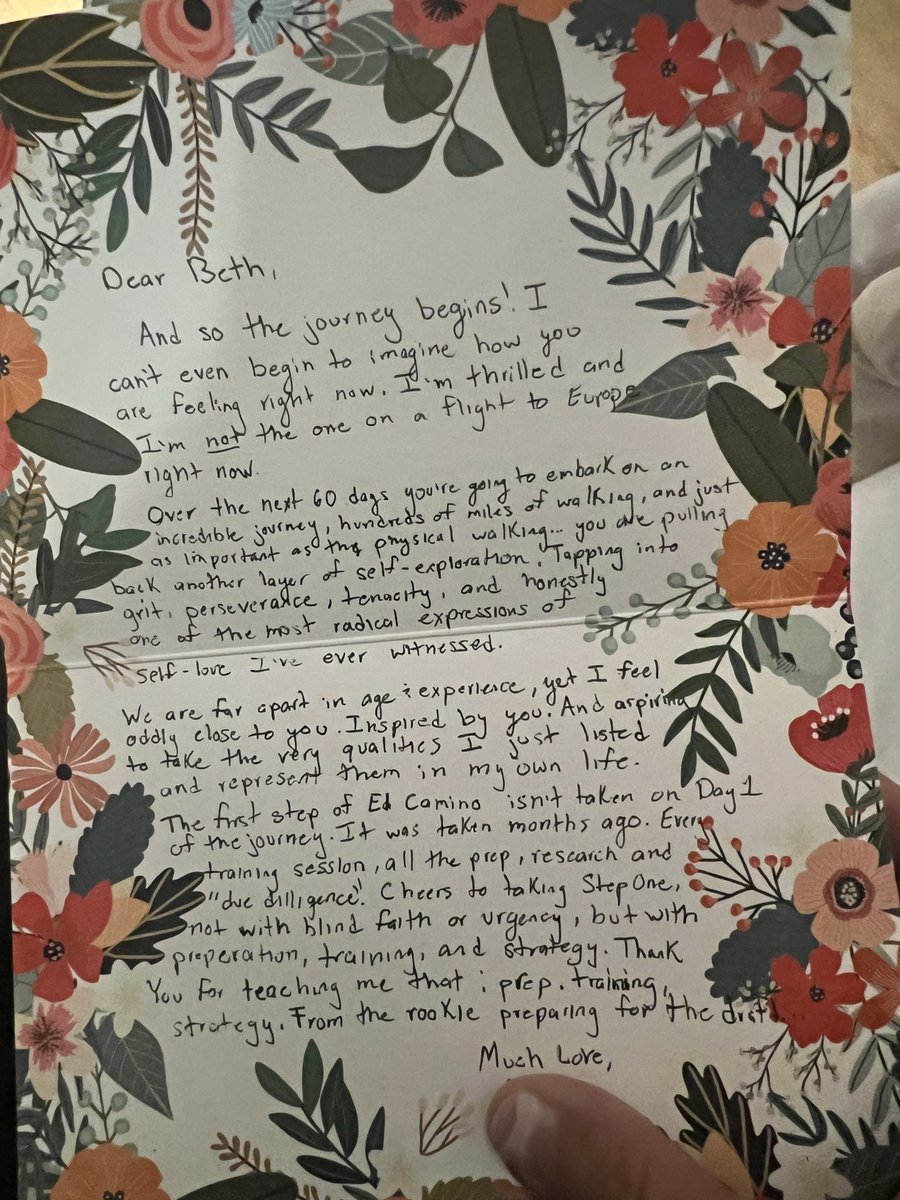 Dear Beth,
And so the journey begins! I
can't even begin to imagine how you
are feeling right now. I'm thrilled and
I'm not the one on a flight to Europe
right now.
Over the next 60 days you're going to embark on an
incredible journey, hundreds of miles of walking, and just
as important as the physical walking... you are pulling
back another layer of self-exploration. Tapping into
grit, perseverance, tenacity, and honestly
one of the most radical expressions of
self-love I've ever witnessed.
We are far apart in age & experience, yet I feel
oddly close to you. Inspired by you. And aspiring
to take the very qualities I just listed
and represent them in my own life.
The first step of El Camino isn't taken on Day 1
of the journey. It was taken months ago. Every
training session, all the prep, research and
"due dilligence". Cheers to taking Step One,
not with blind faith or urgency, but with
preperation, training, and strategy. Thank
You for teaching me that; prep. training,
strategy. From the rookie preparing for the
Much Love,